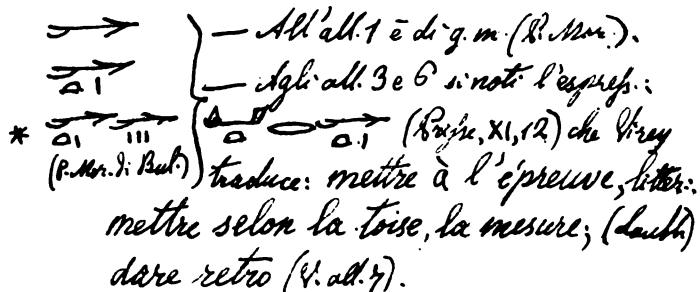 — All'all. 1 è di g. m. (P. Mor.).
— Agli all. 3 e 6 si noti l'espress.:
* (Prisse, XI, 12) che Virey
(P. Mor. di Bul.) traduce: mettre à l'épreuve, litter.:
mettre selon la toise, la mesure; (dubbi)
dare retro (V. all. 7).